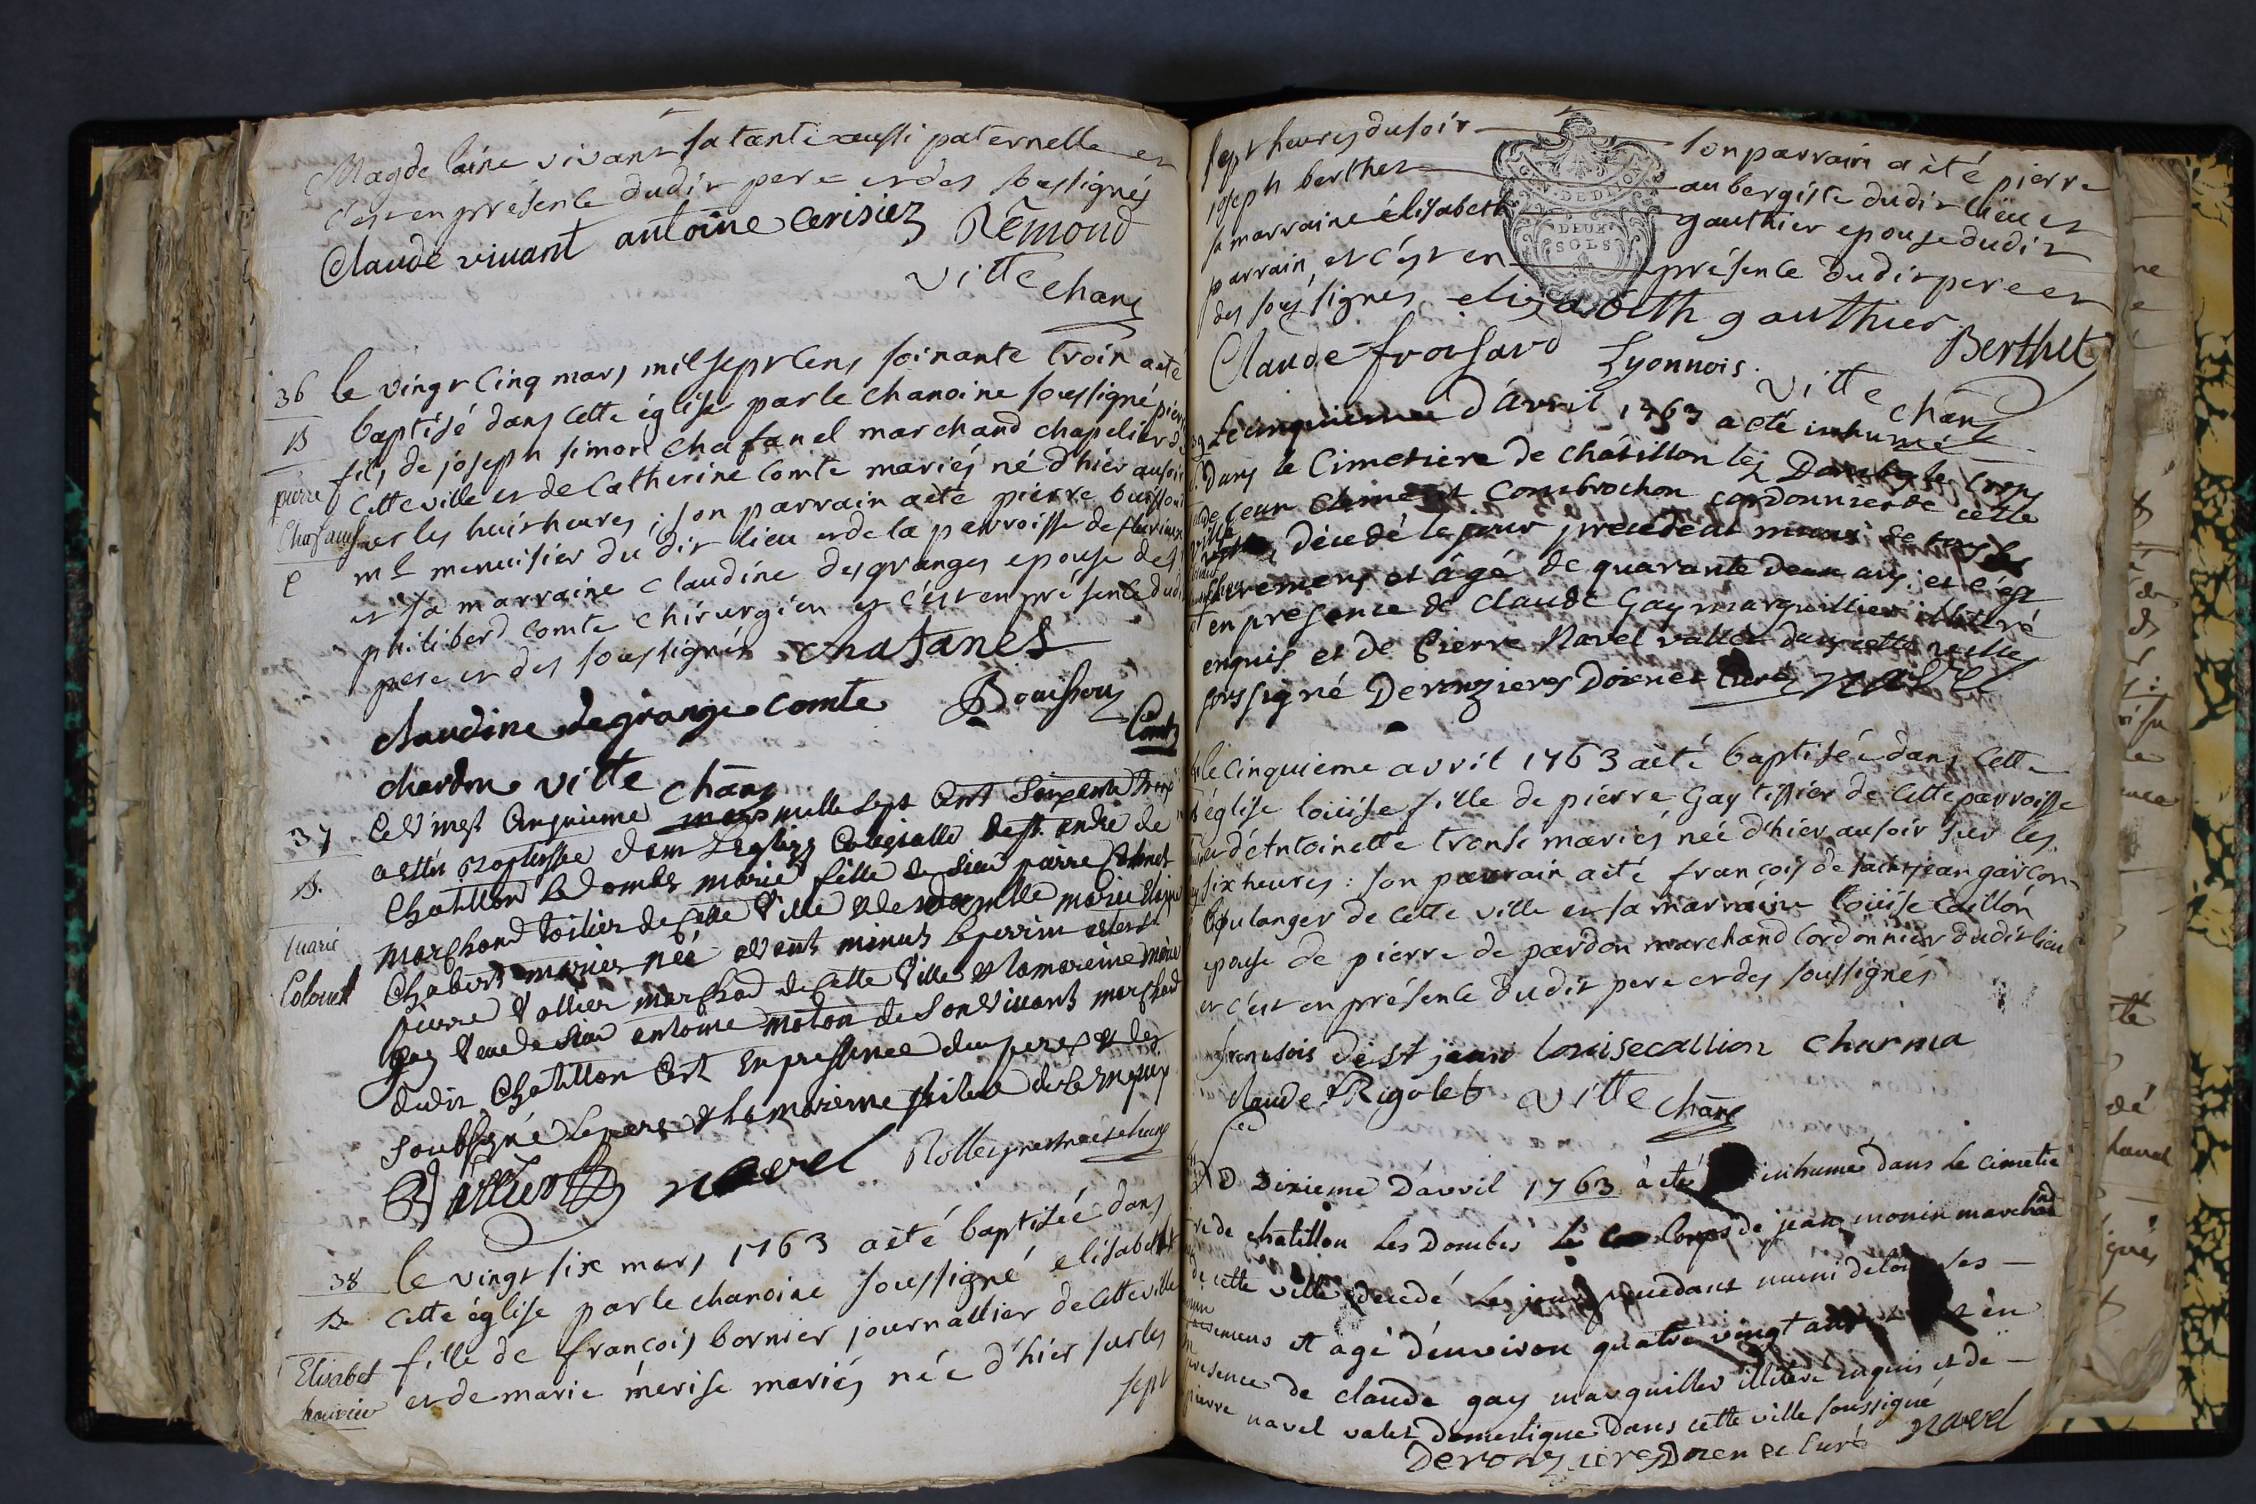 Magdelaine vivant sa tante aussi paternelle et
c'est en présence dudit pere et des soussignés
Claude vivant antoine Cerisiez Rémond
vitte chan̄e
36
B
pierre
Chasanel
le vingt cinq mars mil sept cens soixante trois a été
baptisé dans cette église par le chanoine soussigné pierre
fils de joseph simon Chasanel marchand chapelier de
cette ville et de Catherine Comte mariés né d'hier au soir
sur les huit heures ; son parrain a été pierre buisson
me menuisier du dit lieu et de la parroisse de fleurieux
et sa marraine Claudine desgranges epouse de sr
philiberd Comte chirurgien et c'est en présence dudit
pere et des soussignés chasanel
claudine degrange comte Bouisson
Comte
chardon vitte chan̄e
37
B.
marie
Colomet
cinquieme mars mille sept cent soixente trois
a estée Baptissée dans l'eglize Colegialle de st endré de
Chatillon Le dombes marie fille de sieur pierre
marchand toilier de cette ville & de marie
Chabert mariés née minuit le perin
pierre vollier marchad de cette ville & la mareine
veuve de sieur entoine de son vivant marchad
dudit Chatillon Cest en pressence du pere & des
soubsigné Le pere & la mareine
navel Rollet prestre et chan̄e
38
B
Elisabet
bornier
le vingt six mars 1763 a été baptisée dans
cette église par le chanoine soussigné elisabeth
fille de françois bornier journallier de cette ville
et de marie mérise mariés née d'hier sur les
sept
sept heures du soir son parrain a été pierre
joseph berthet aubergiste dudit lieu et
sa marraine élisabeth gauthier epouse dudit
parrain et c'est en présence dudit pere et
des soussignés elizabeth gauthier
GEN DE DIJON
DEUX
SOLS
Claude froisard Lyonnois. Berthet
vitte chan̄e
Le cinquieme d'avril 1763 a eté inhumé
dans le Cimetiere de chatillon lez Dombe le corps
de jean Clement Combrochon cordonnier de cette
ville décedé le jour precedent muni de tous les
sacremens et âgé de quarante deux ans ; et c'est
en presence de Claude Gay marguillier illitéré
enquis et de Pierre Navel vallet dans cette ville
soussigné Deronzieres Doien et Curé navel
le cinquieme avril 1763 a été baptisée dans cette
église loüise fille de pierre Gay tissier de cette parroisse
et d'Antoinette mariés née d'hier au soir sur les
six heures : son parrain a été françois de saint jean garçon
boulanger de cette ville et sa marraine loüise Caillon
epouse de pierre de pardon marchand Cordonnier dudit lieu
et c'est en présence dudit pere et des soussignés
fransois de st jean louise callion charma
Claude Rigolet vitte chan̄e
Le Dixieme D'avril 1763 à été inhumé dans le cimetie
re de chatillon Les Dombes le Corps de jean monin marchand
de cette ville décedé le jour precedant muni de tous ses
sacremens et agé d'environ quatre vingt ans et c'est en
presence de claude gay marguiller illiteré enquis et de
pierre navel valet Domestique dans cette ville soussigné
Deronzieres Doien et Curé navel